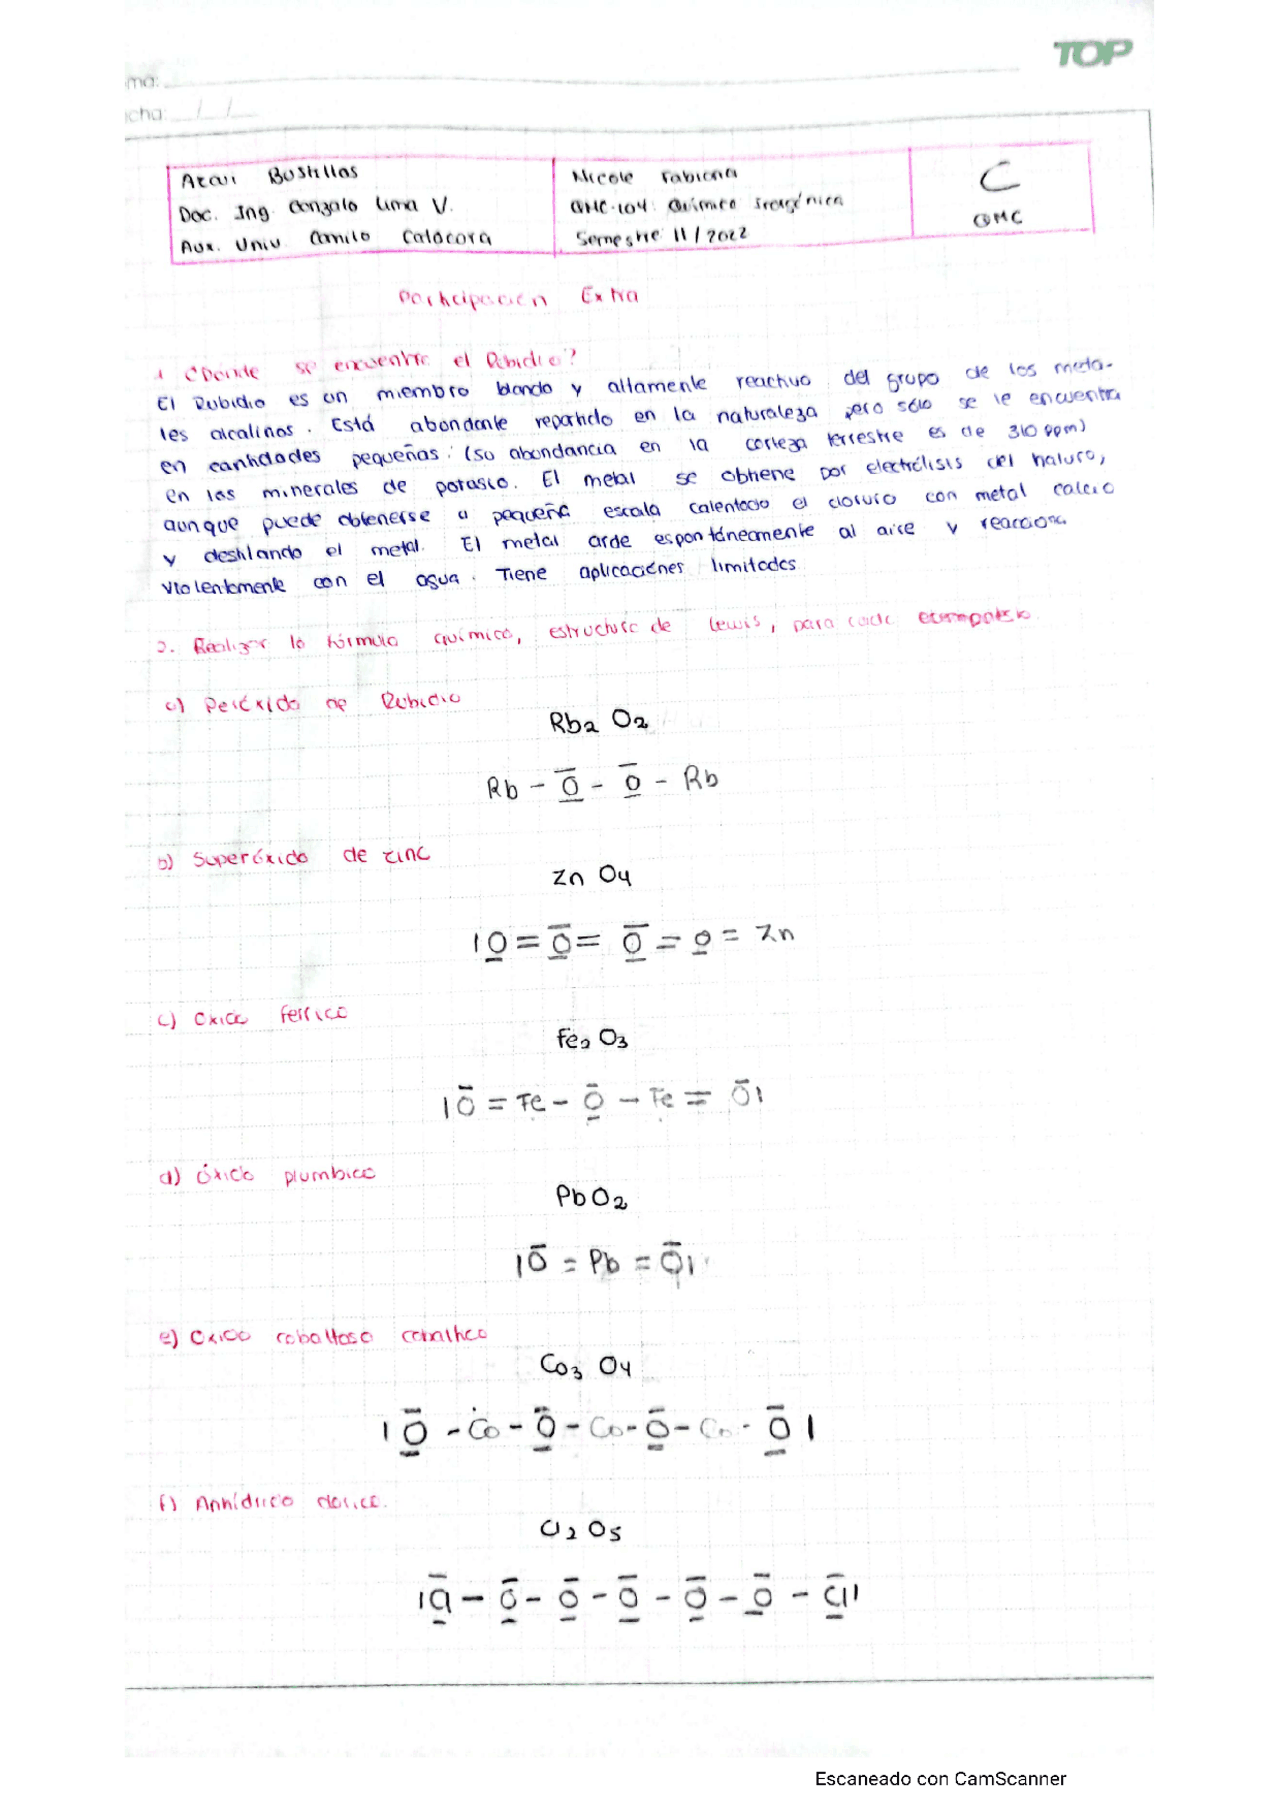 TOP
ma:
cha: / /
Arcui Bustillos
Doc. Ing. Gonzalo Lima V.
Aux. Univ. Camilo Calacora
Nicole Fabiana
QMC-104: Química Inorgánica
Semestre II/2022
C
QMC
Participación Extra
1. ¿Dónde se encuentra el Rubidio?
El Rubidio es un miembro blando y altamente reactivo del grupo de los meta-
les alcalinos. Está abondante repartido en la naturaleza pero sólo se le encuentra
en cantidades pequeñas: (su abondancia en la corteza terrestre es de 310 ppm)
en las minerales de potasio. El metal se obtiene por electrólisis del haluro,
aunque puede obtenerse a pequeña escala calentado el cloruro con metal calcio
y destilando el metal. El metal arde espontáneamente al aire y reacciona
violentamente con el agua. Tiene aplicaciónes limitadas
2. Realizar la fórmula química, estructura de Lewis, para cada
a) Peróxido de Rubidio
Rb2 O2
Rb - O - O - Rb
b) Superóxido de zinc
Zn O4
|O = O = O = O = Zn
c) Oxido ferrico
Fe2 O3
|O = Fe - O - Fe = O|
d) Óxido plumbico
PbO2
|O = Pb = O|
e) Oxido cobaltoso cobaltico
Co3 O4
|O - Co - O - Co - O - Co - O|
f) Anhídrico clorico.
Cl2 O5
|Cl - O - O - O - O - O - Cl|
Escaneado con CamScanner